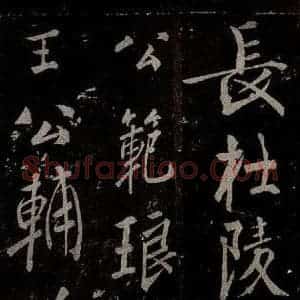 長杜陵
公範琅
王公輔
Shufaziliao.com